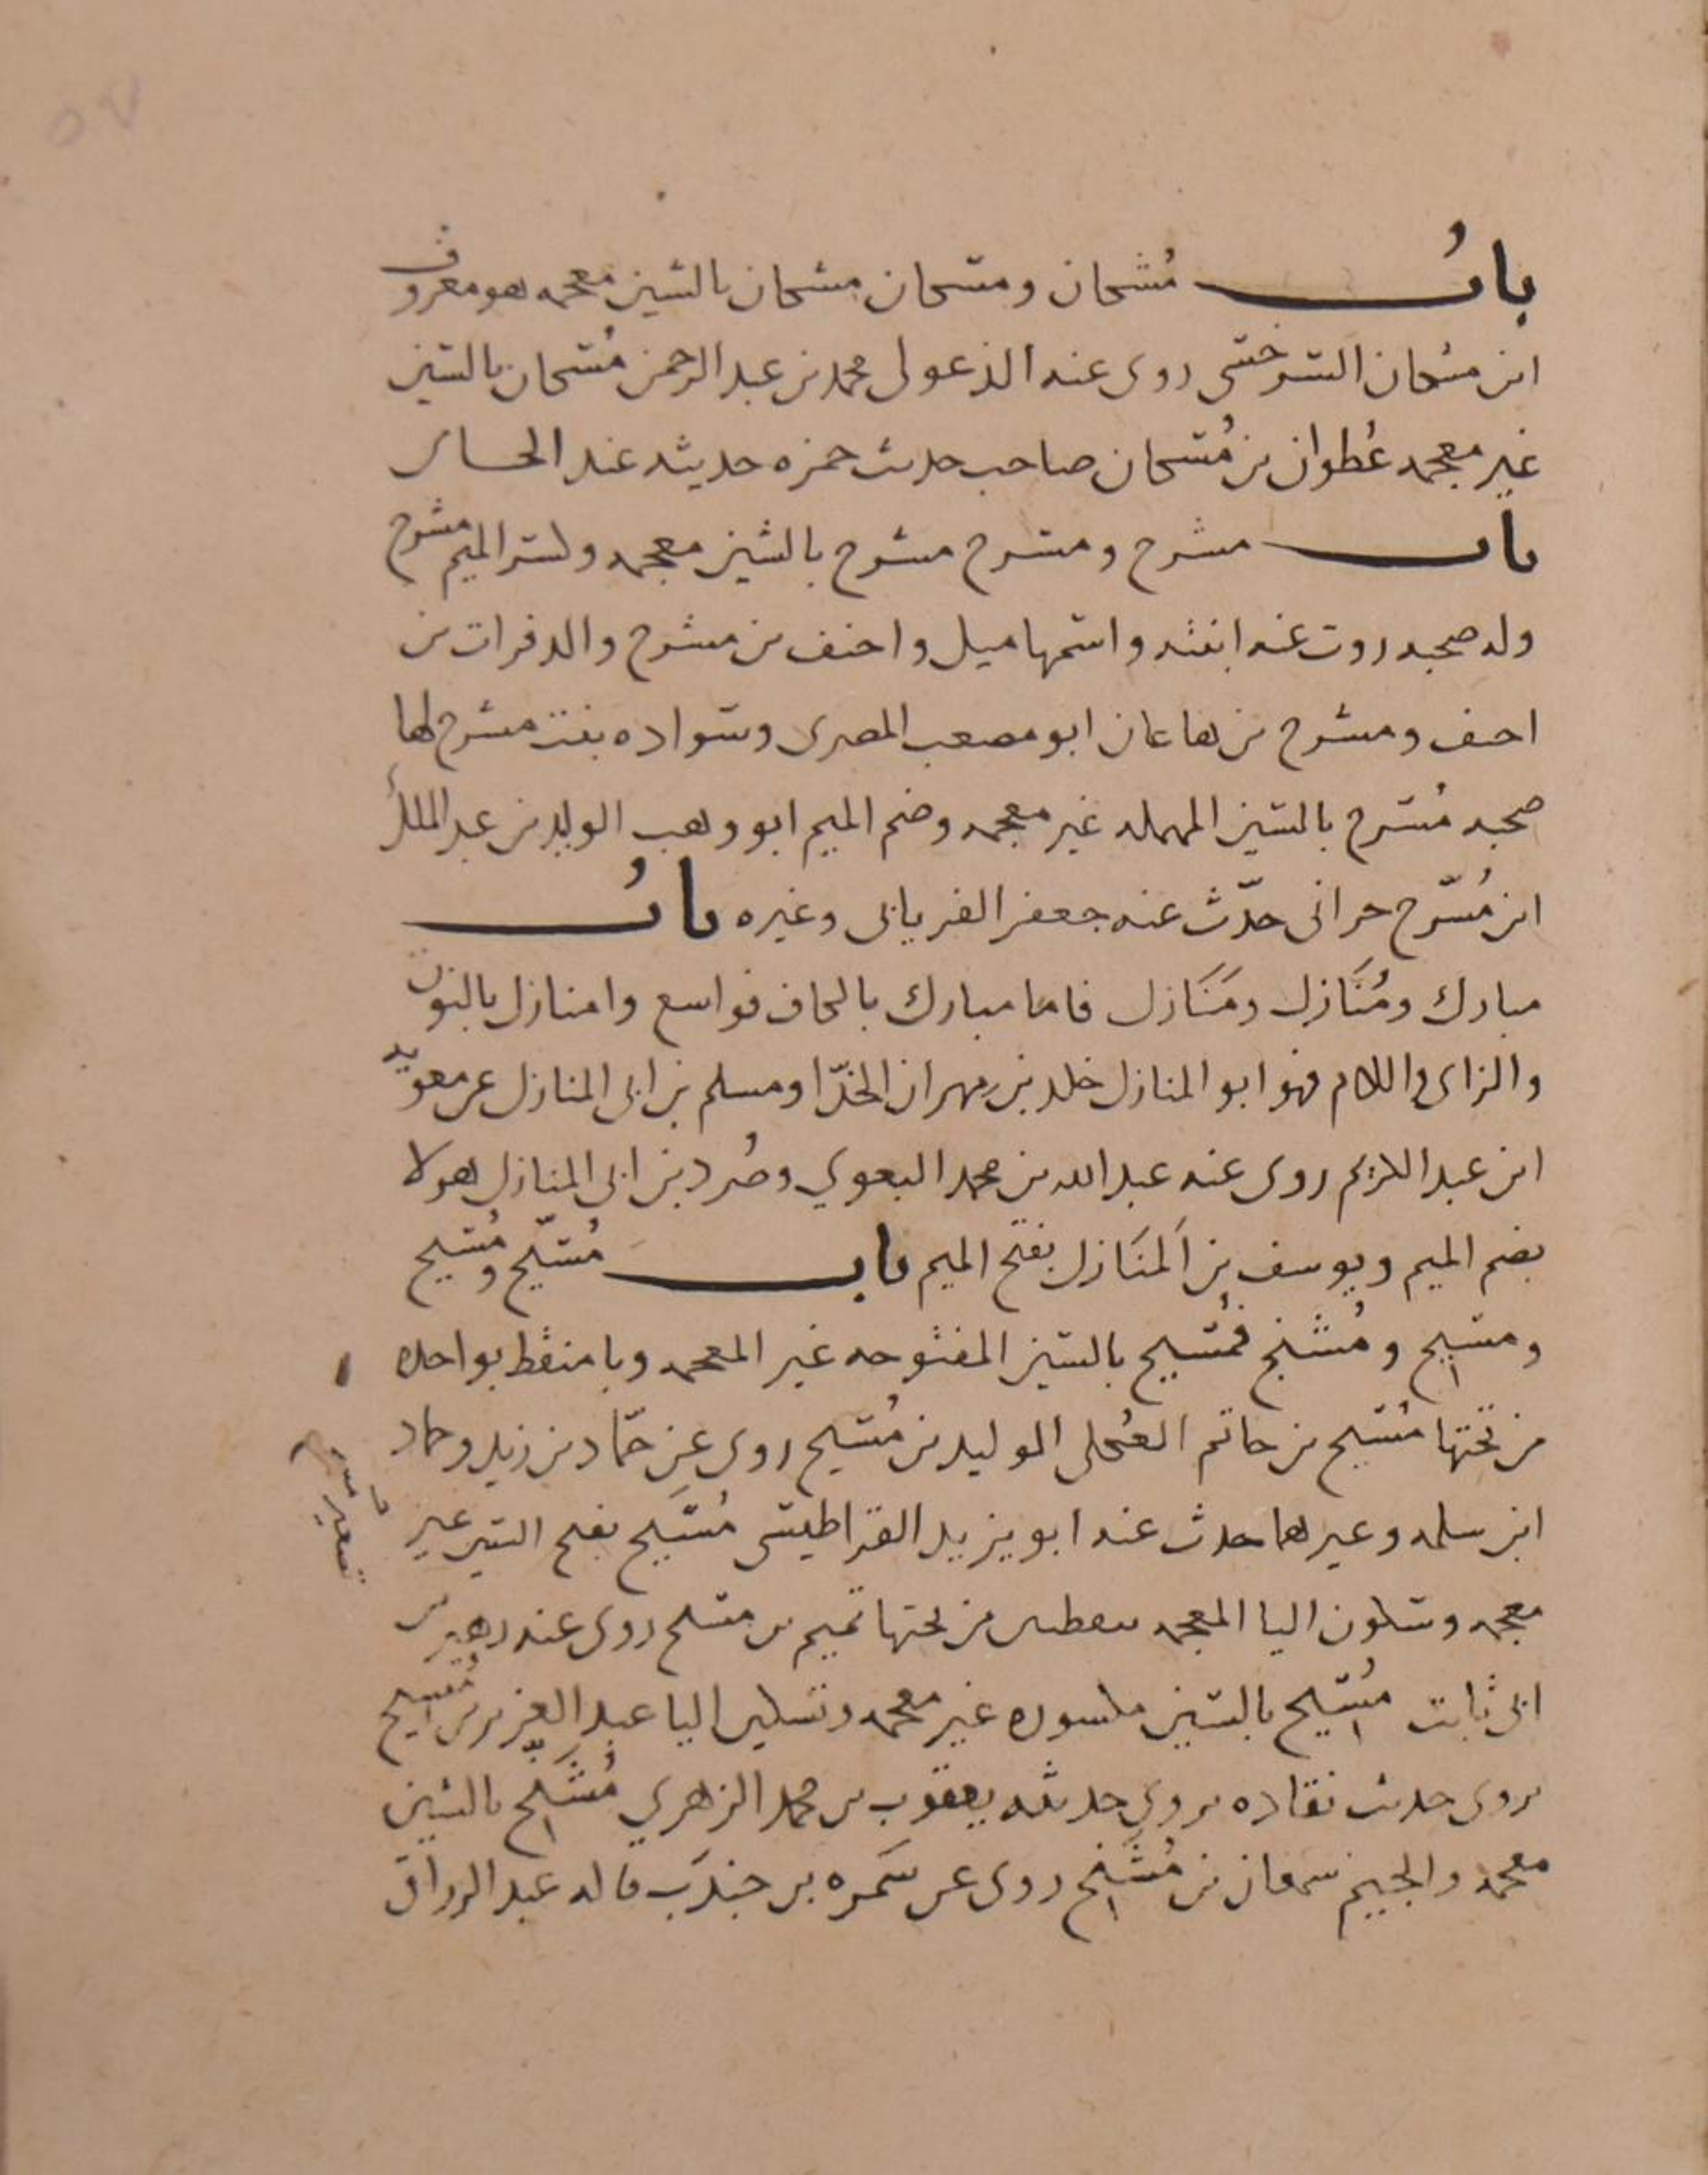 باب مُشكان ومسكان مشكان بالشين معجمه هو معروف
ابن مشكان السرخسى روى عنه الدغولى محمد بن عبد الرحمن مُسكان بالسين
غير معجمه عُطوان بن مُسكان صاحب حديث حمزه حديثه عند الحسانى
باب مشرح ومسرح مشرح بالشين معجمه وكسر الميم مشرح
وله صحبه روت عنه ابنته واسمها ميل واحنف بن مشرح والد فرات بن
احنف ومشرح بن هاعان ابو مصعب المصرى وسواده بنت مشرح لها
صحبه مُسرح بالسين المهمله غير معجمه وضم الميم ابو وهب الوليد بن عبد الملك
ابن مُسرّح حرانى حدّث عنه جعفر الفريابى وغيره بابُ
مبارك ومُنَازل ومَنَازل فاما مبارك بالكاف فواسع وامنازل بالنون
والزاى واللام فهو ابو المنازل خلد بن مهران الحذّا ومسلم بن ابى المنازل عن معويه
ابن عبد الكريم روى عنه عبد الله بن محمد البغوي وصُرد بن ابى المنازل هولا
بضم الميم ويوسف بن اَلمنَازل بفتح الميم باب مُسبّح ومُسيح
ومسيح ومُشنج فمُسبح بالسين المفتوحه غير المعجمه وبا منقط بواحده
من تحتها مُسبح بن حاتم العُكلى الوليد بن مُسبح روى عن حمّاد بن زيد وحماد
ابن سلمه وغيرهما حدث عنه ابو يزيد القراطيسى مُسَيح بفتح السين غير
معجمه وسكون اليا المعجمه بنقطين من تحتها تميم بن مسيح روى عنه زهير بن
ابى ثابت مُسيح بالسين مكسوره غير معجمه وتسكين اليا عبد العزيز بن مُسيح
يروى حديث نقاده يروي حديثه يعقوب بن محمد الزهري مُشَنج بالشين
معجمه والجيم سمعان بن مُشَنج روى عن سَمره بن جندَب قاله عبد الرزاق